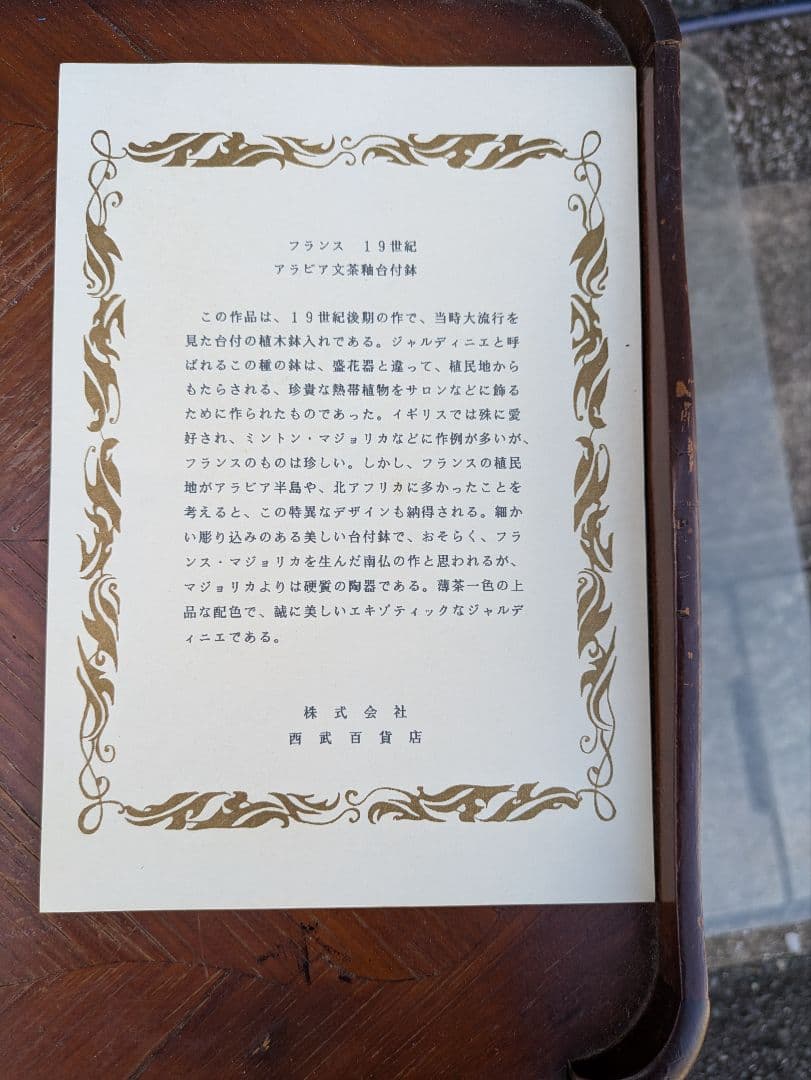 フランス　１９世紀
アラビア文茶釉台付鉢
この作品は、１９世紀後期の作で、当時大流行を
見た台付の植木鉢入れである。ジャルディニエと呼
ばれるこの種の鉢は、盛花器と違って、植民地から
もたらされる、珍貴な熱帯植物をサロンなどに飾る
ために作られたものであった。イギリスでは殊に愛
好され、ミントン・マジョリカなどに作例が多いが、
フランスのものは珍しい。しかし、フランスの植民
地がアラビア半島や、北アフリカに多かったことを
考えると、この特異なデザインも納得される。細か
い彫り込みのある美しい台付鉢で、おそらく、フラ
ンス・マジョリカを生んだ南仏の作と思われるが、
マジョリカよりは硬質の陶器である。薄茶一色の上
品な配色で、誠に美しいエキゾティックなジャルデ
ィニエである。
株式会社
西武百貨店